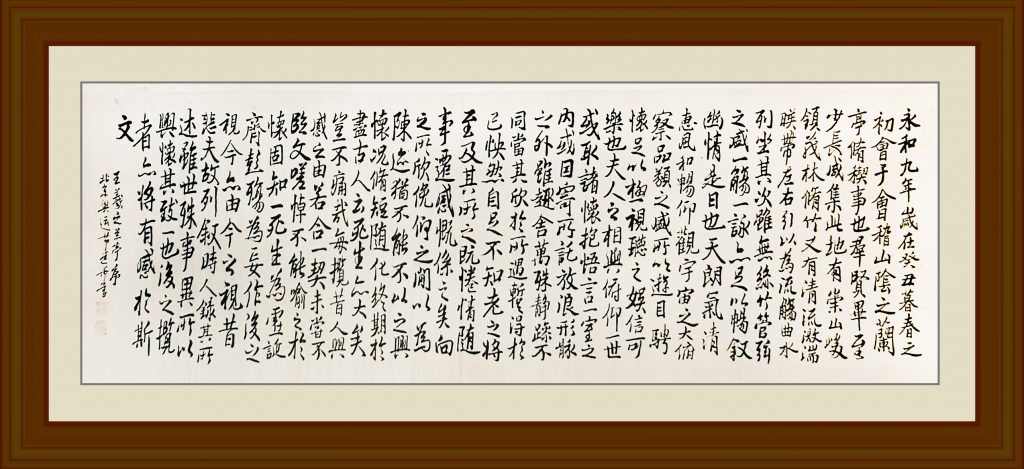 永和九年歲在癸丑暮春之
初會于會稽山陰之蘭
亭脩稧事也羣賢畢至
少長咸集此地有崇山峻
領茂林脩竹又有清流激湍
暎帶左右引以為流觴曲水
列坐其次雖無絲竹管絃
之盛一觴一詠亦足以暢叙
幽情是日也天朗氣清
惠風和暢仰觀宇宙之大俯
察品類之盛所以遊目騁
懷足以極視聽之娛信可
樂也夫人之相與俯仰一世
或取諸懷抱悟言一室之
內或因寄所託放浪形骸
之外雖趣舍萬殊靜躁不
同當其欣於所遇暫得於
己怏然自足不知老之將
至及其所之既惓情隨
事遷感慨係之矣向
之所欣俛仰之閒以為
陳迹猶不能不以之興
懷況脩短隨化終期於
盡古人云死生亦大矣
豈不痛哉每攬昔人興
感之由若合一契未嘗不
臨文嗟悼不能喻之於
懷固知一死生為虛誕
齊彭殤為妄作後之
視今亦由今之視昔
悲夫故列叙時人錄其所
述雖世殊事異所以
興懷其致一也後之攬
者亦將有感於斯
文
王羲之蘭亭序
北京奧運